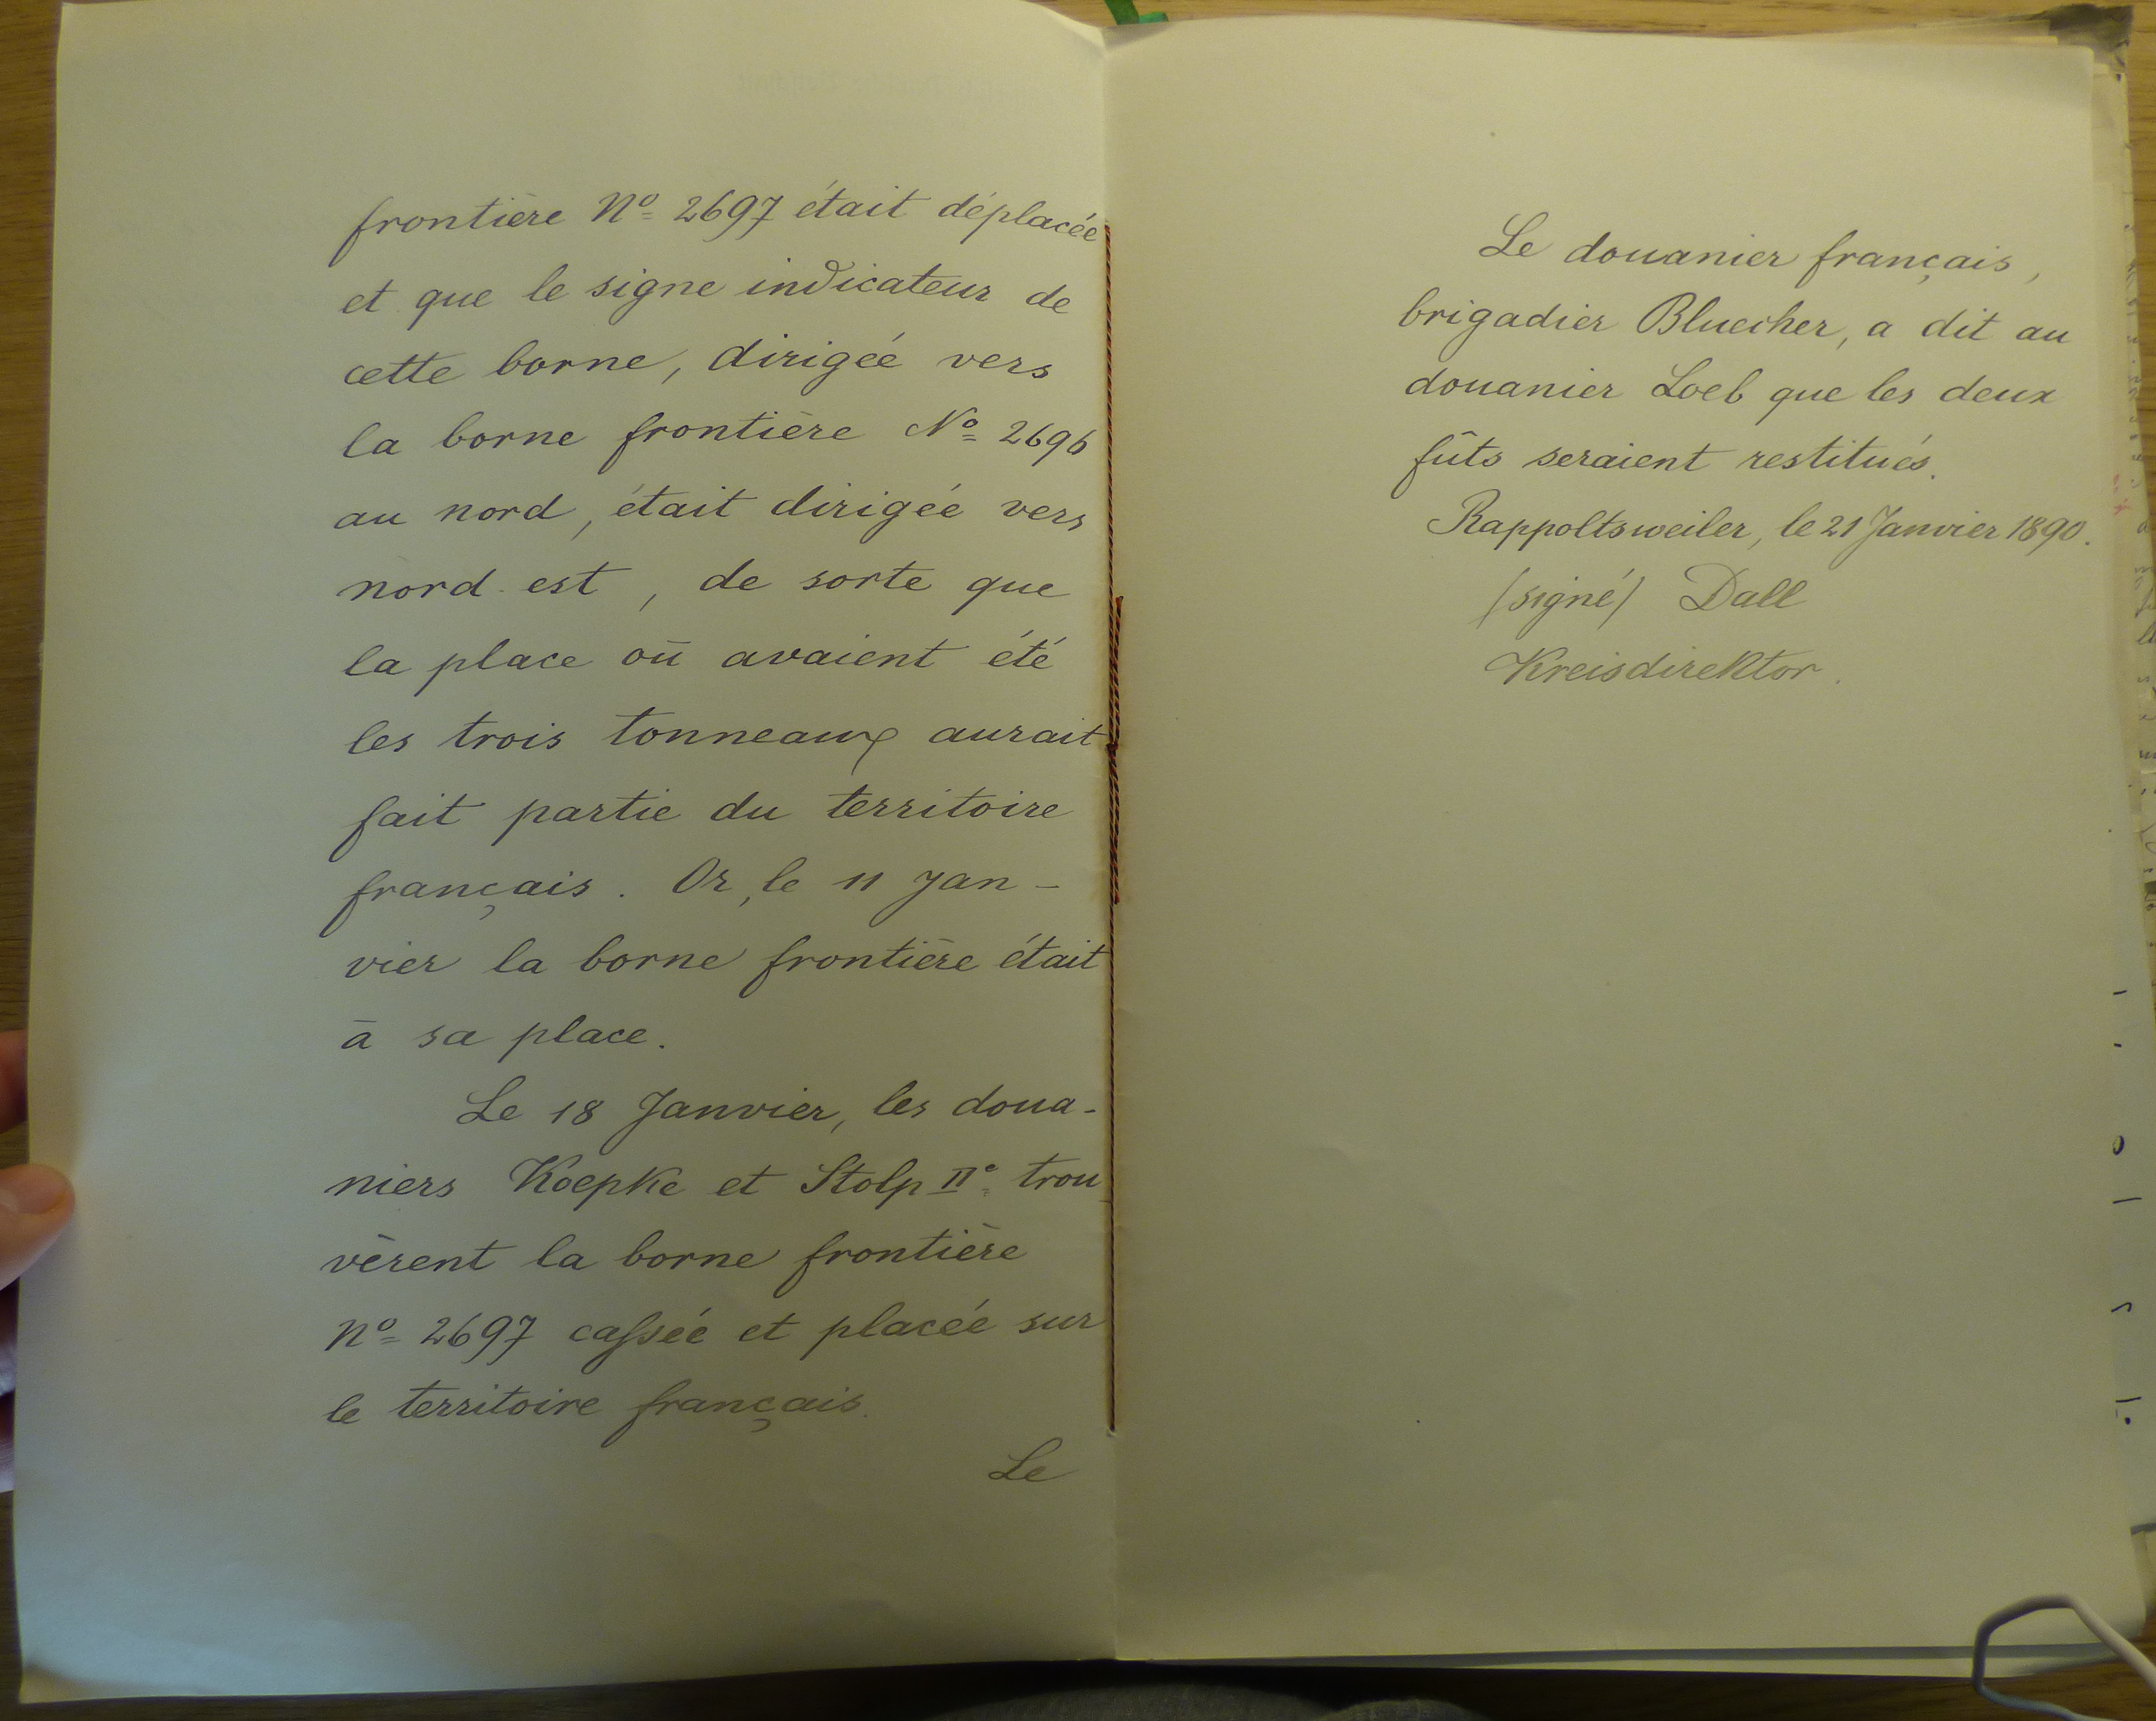 frontière No 2697 était déplacée
et que le signe indicateur de
cette borne, dirigée vers
la borne frontière No 2696
au nord, était dirigée vers
nord est, de sorte que
la place où avaient été
les trois tonneaux aurait
fait partie du territoire
français. Or, le 11 Jan-
vier la borne frontière était
à sa place.
Le 18 Janvier, les doua-
niers Koepke et Stolp IIo trou-
vèrent la borne frontière
No 2697 cassée et placée sur
le territoire français.
Le
Le douanier français,
brigadier Bluecher, a dit au
douanier Loeb que les deux
fûts seraient restitués.
Rappoltsweiler, le 21 Janvier 1890.
(signé) Dall
Kreisdirektor.